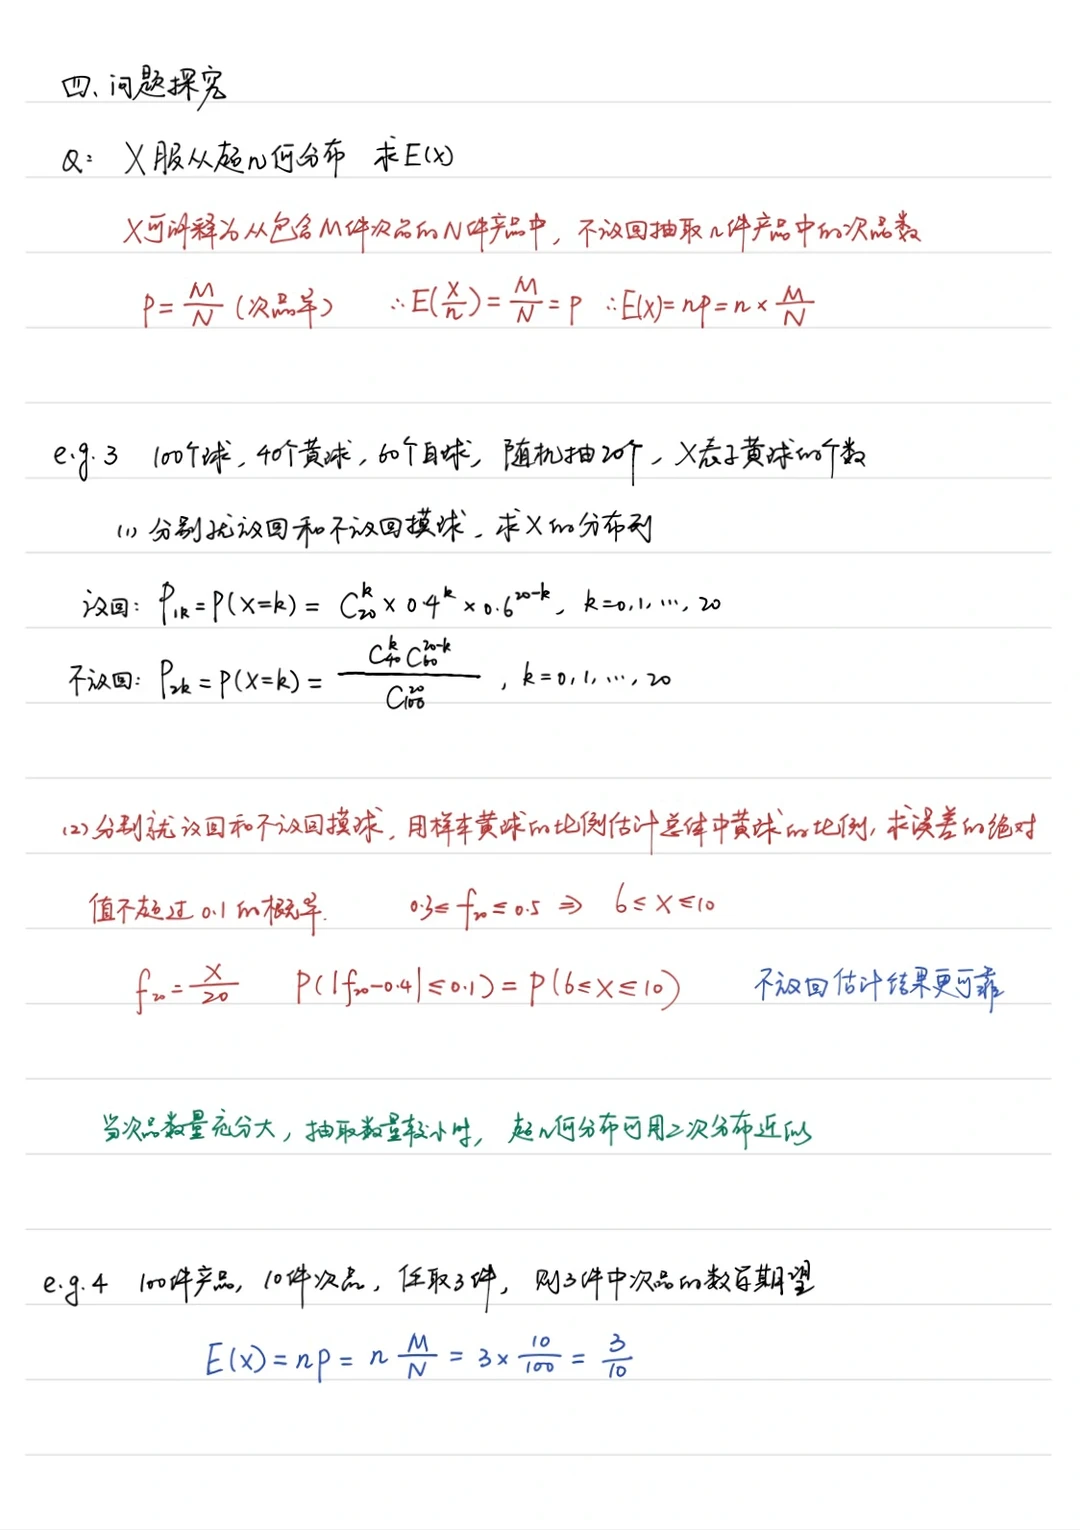 四、问题探究
Q: X服从超几何分布 求E(X)
X可解释为从包含M件次品的N件产品中，不放回抽取n件产品中的次品数
P=M/N (次品率) ∴E(X/n)=M/N=P ∴E(X)=np=n×M/N
e.g.3 100个球，40个黄球，60个白球，随机抽20个，X表示黄球的个数
(1) 分别就放回和不放回摸球，求X的分布列
放回: P₁ₖ=P(X=k)= C₂₀ᵏ×0.4ᵏ×0.6²⁰⁻ᵏ, k=0,1,…,20
不放回: P₂ₖ=P(X=k)= C₄₀ᵏC₆₀²⁰⁻ᵏ/C₁₀₀²⁰, k=0,1,…,20
(2)分别就放回和不放回摸球，用样本黄球的比例估计总体中黄球的比例，求误差的绝对
值不超过0.1的概率. 0.3≤f₂₀≤0.5 ⇒ 6≤X≤10
f₂₀=X/20 P(|f₂₀-0.4|≤0.1)=P(6≤X≤10) 不放回估计结果更可靠
当次品数量充分大，抽取数量较小时，超几何分布可用二次分布近似
e.g.4 100件产品，10件次品，任取3件，则3件中次品的数学期望
E(X)=np=n M/N=3×10/100=3/10